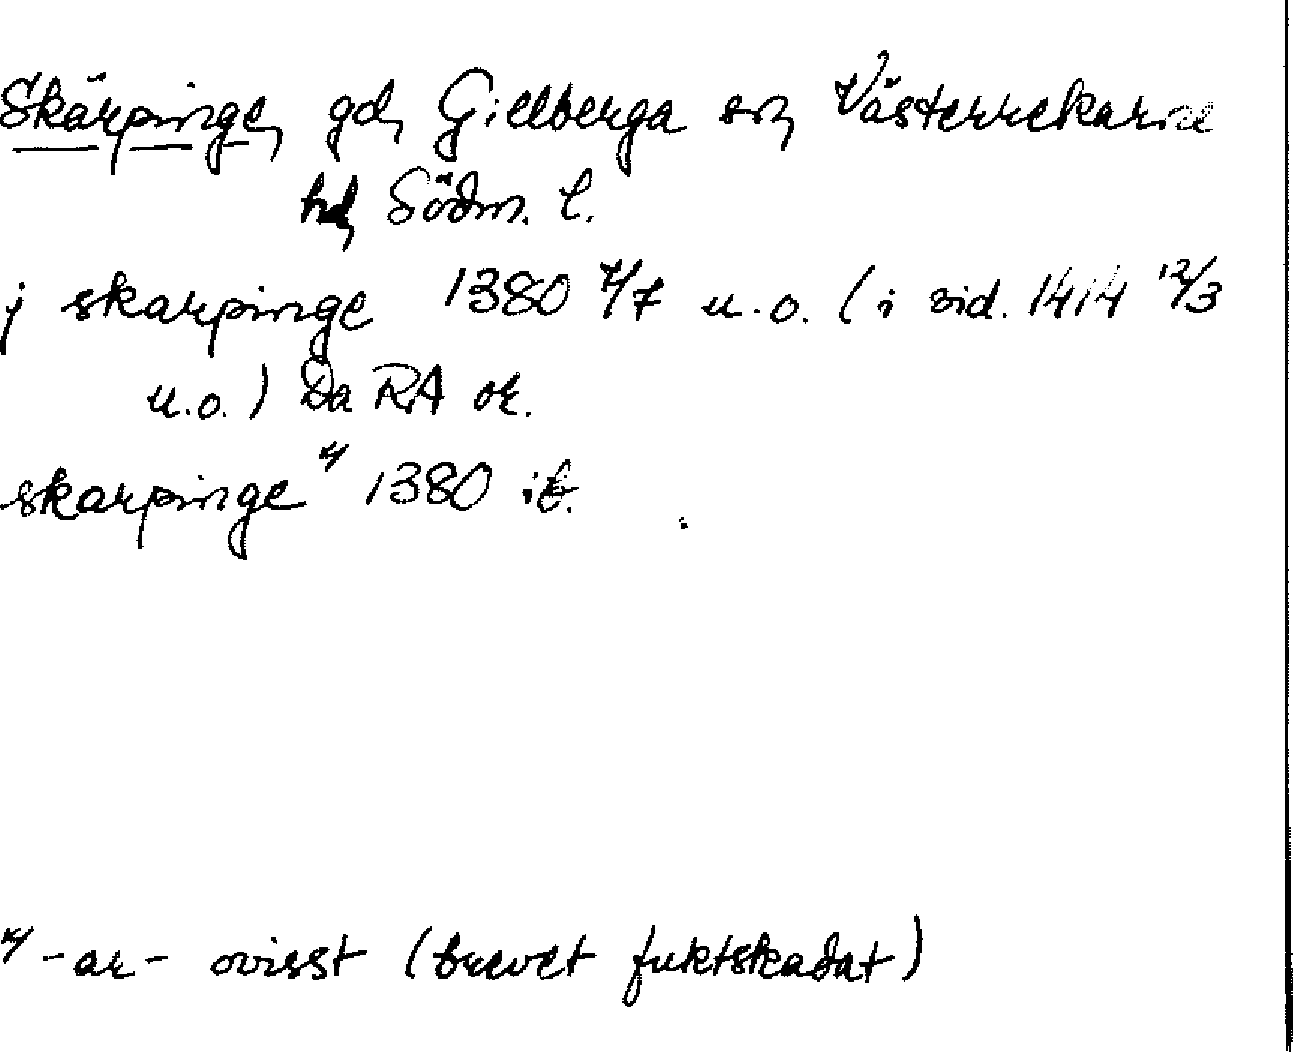 Skärpinge, gd, Gillberga sn, Västerrekarne
hd, Södm. l.
j skarpinge 1380 7/7 u.o. (i vid. 1414 12/3
u.o.) Da RA or.
skarpinge x) 1380 ib.
x) -ar- ovisst (brevet fuktskadat)